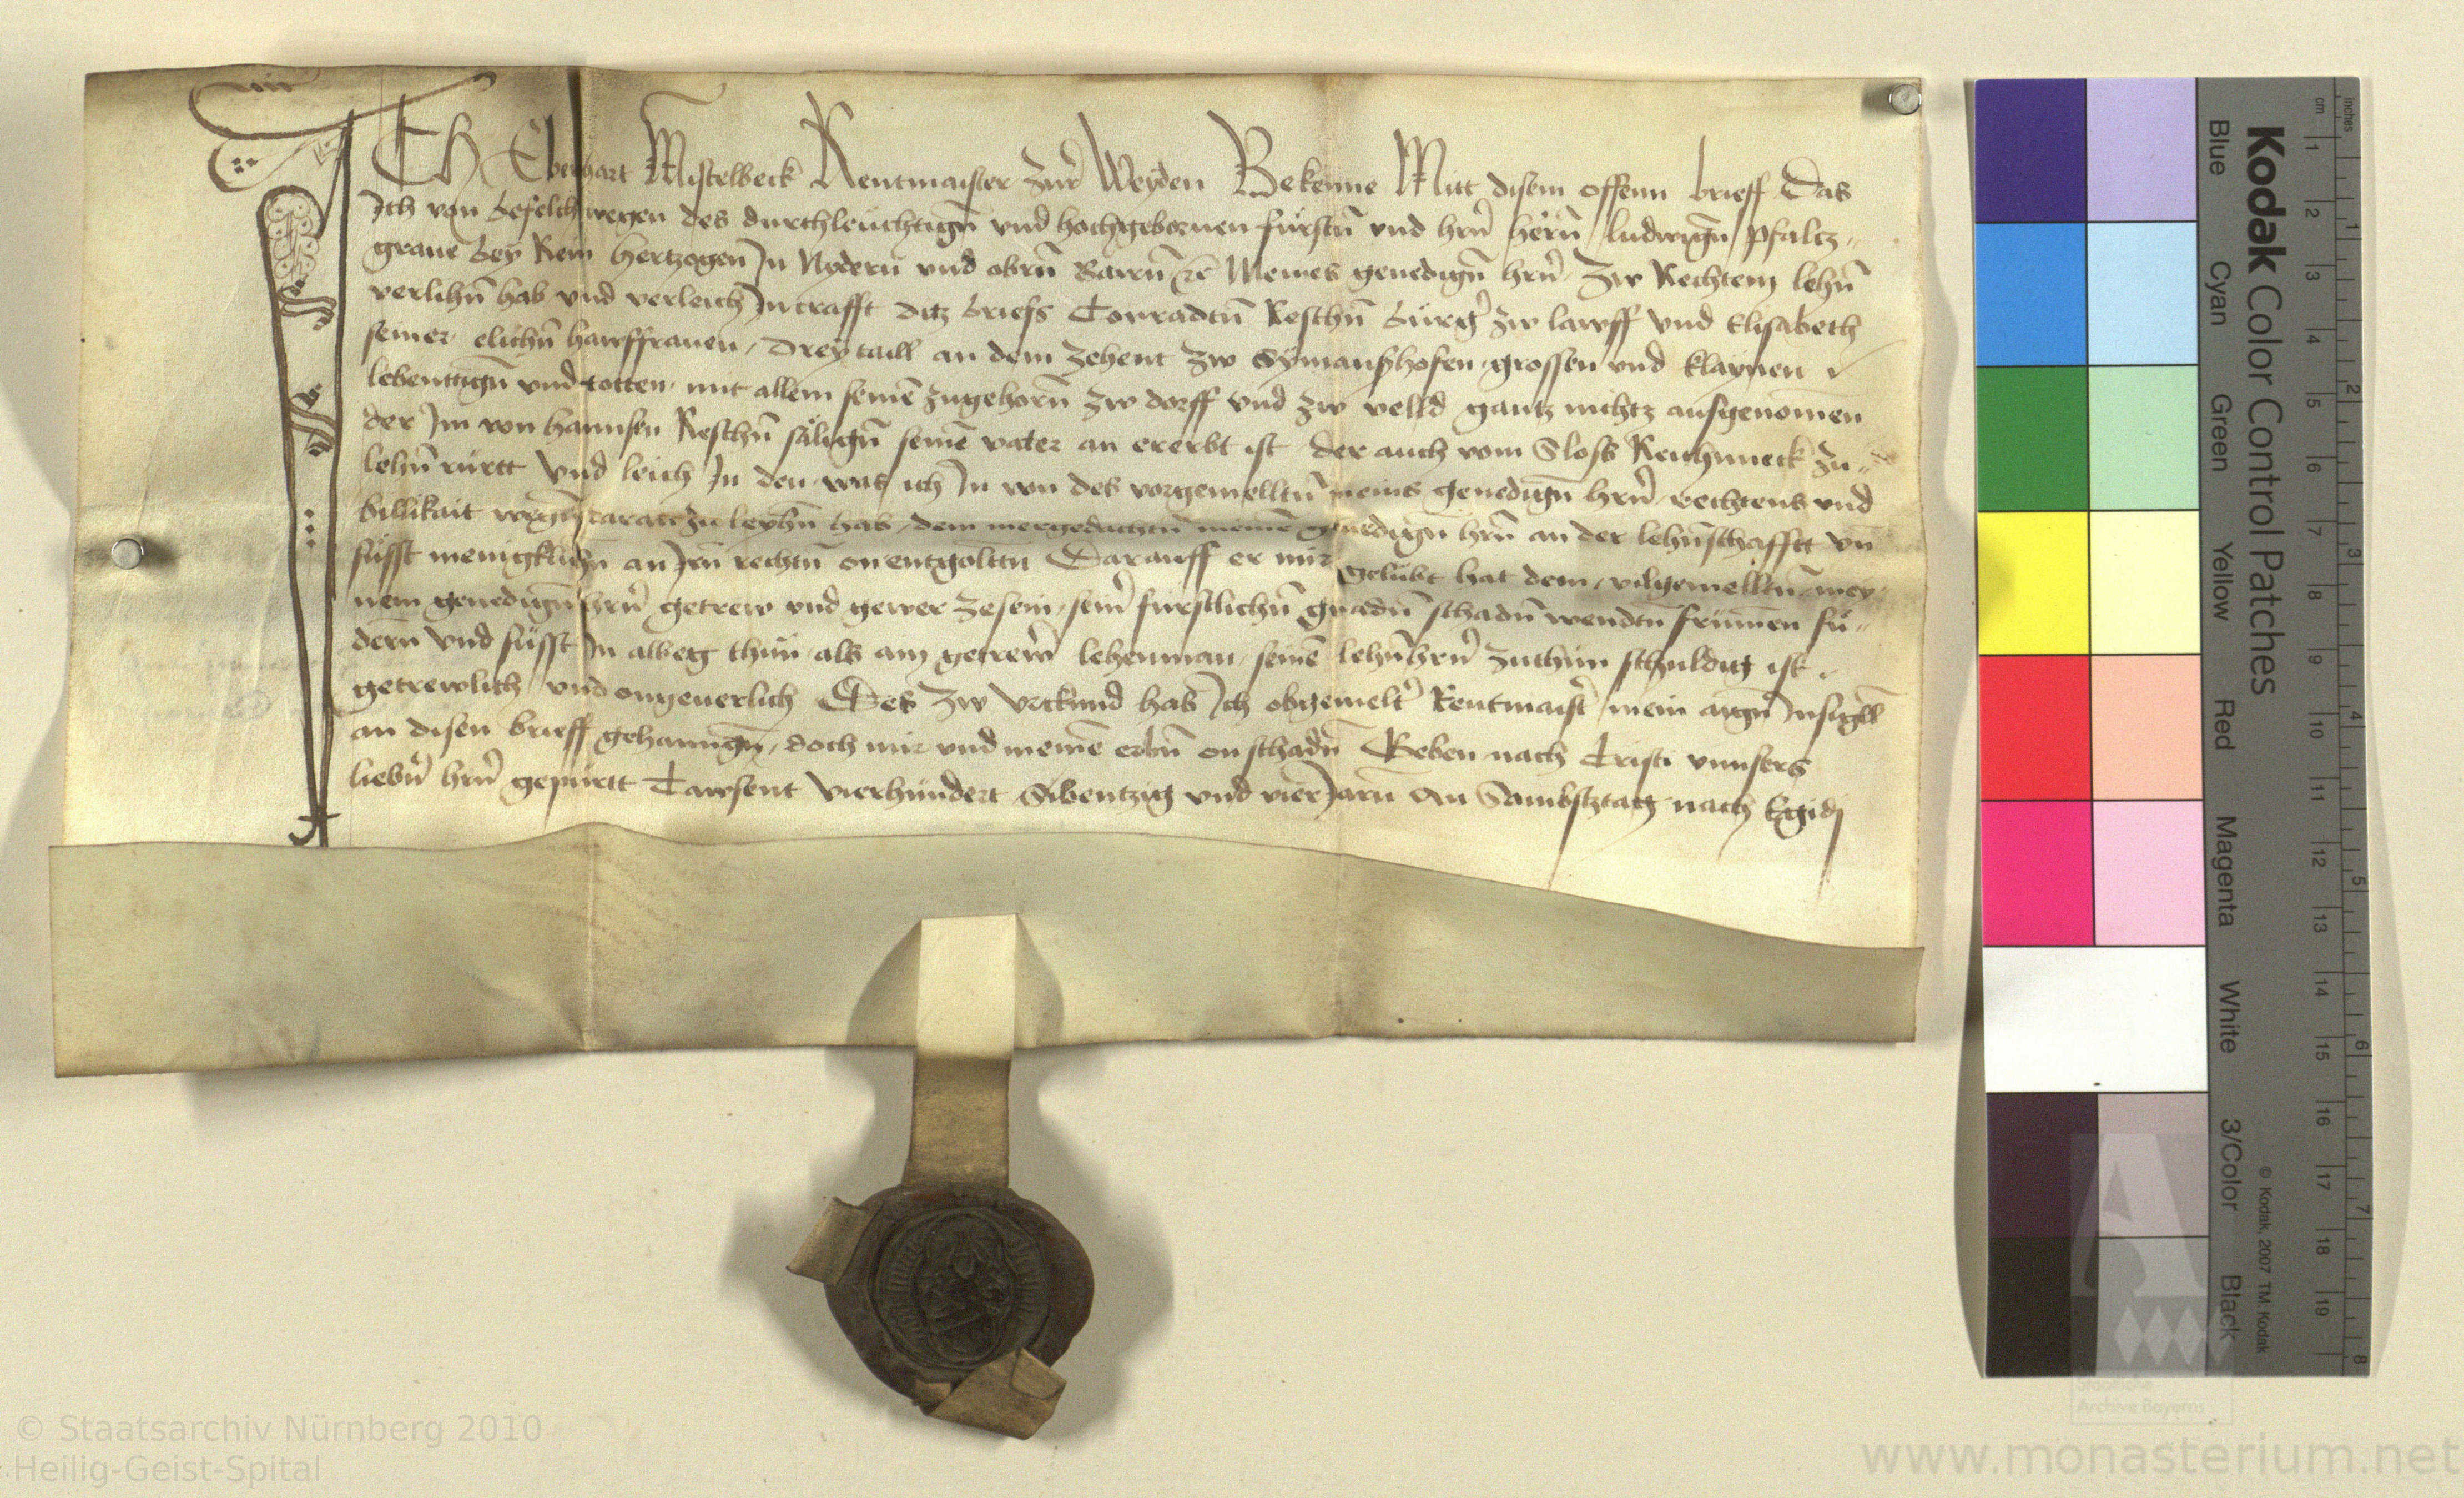 ICH Eberhart Mistelbeck Rentmaister zur Weyden Bekenne Mitt disem offenn brieff Das
Ich von befelch wegen des durchleuchtigñ vnd hochgebornen furstñ vnd hrñ herñ ludwigñ pfaltz„
graue bey Rein hertzogen In Nydern vnd obrñ Bairñ rc̄ Meines genedigñ hrñ zw Rechtem lehñ
verlihñ hab vnd verleich In crafft ditz briefs Conradtñ Reschñ burg̉ zw lawff vnd Elisabeth
seiner elichñ hawsfrauen, Drey taill an dem zehent zw Symanshofen, grossen vnd klaynen
lebentigñ vnd totten, mit allem seinē zugehorñ zw dorff vnd zw velld gantz nichtz ausgenomen
der Im von hannsen Reschñ säligñ seinē vater an ererbt ist der auch vom Sloss Reichneck zu„
lehñ rürtt Vnd leich In den, was ich In von des vorgemelltñ meins genedigñ hrñ, rechtens vnd
billikait wegen daran zu leyhñ hab, dem mergedachtñ meinē genedigñ hrñ an der lehñschafft vñ
süsst menigklichñ an Irñ rechtñ on entgoltñ Darauff er mir gelübt hat dem, vilgemelltñ mey„
nem genedigñ hrñ getrew vnd gewer zesein, seiñ furstlichñ gnadñ schadñ wendtñ frümen fü„
dern vnd süsst In alweg thun als ain getrew̉ lehenman, seinē lehñhrñ zuthun schuldig ist
getrewlich vnd ongeuerlich Des zw Vrkund hab Ich obgemelt̉ Rentmaist̉ mein aigñ Insigll
an disen brieff gehanngñ, doch mir vnd meinē erbñ on schadñ Geben nach Cristi vnnsers
liebñ hrñ gepürtt Tawsent Vierhundert Sibentzig vnd vier Jarñ An Sambstztag nach Egidj
Kodak Color Control Patches
Blue Cyan Green Yellow Red Magenta White 3/Color Black
© Kodak, 2007 TM: Kodak
cm 1 2 3 4 5 6 7 8 9 10 11 12 13 14 15 16 17 18 19
inches 1 2 3 4 5 6 7 8
Staatliche
Archive Bayerns
© Staatsarchiv Nürnberg 2010
Heilig-Geist-Spital
www.monasterium.net